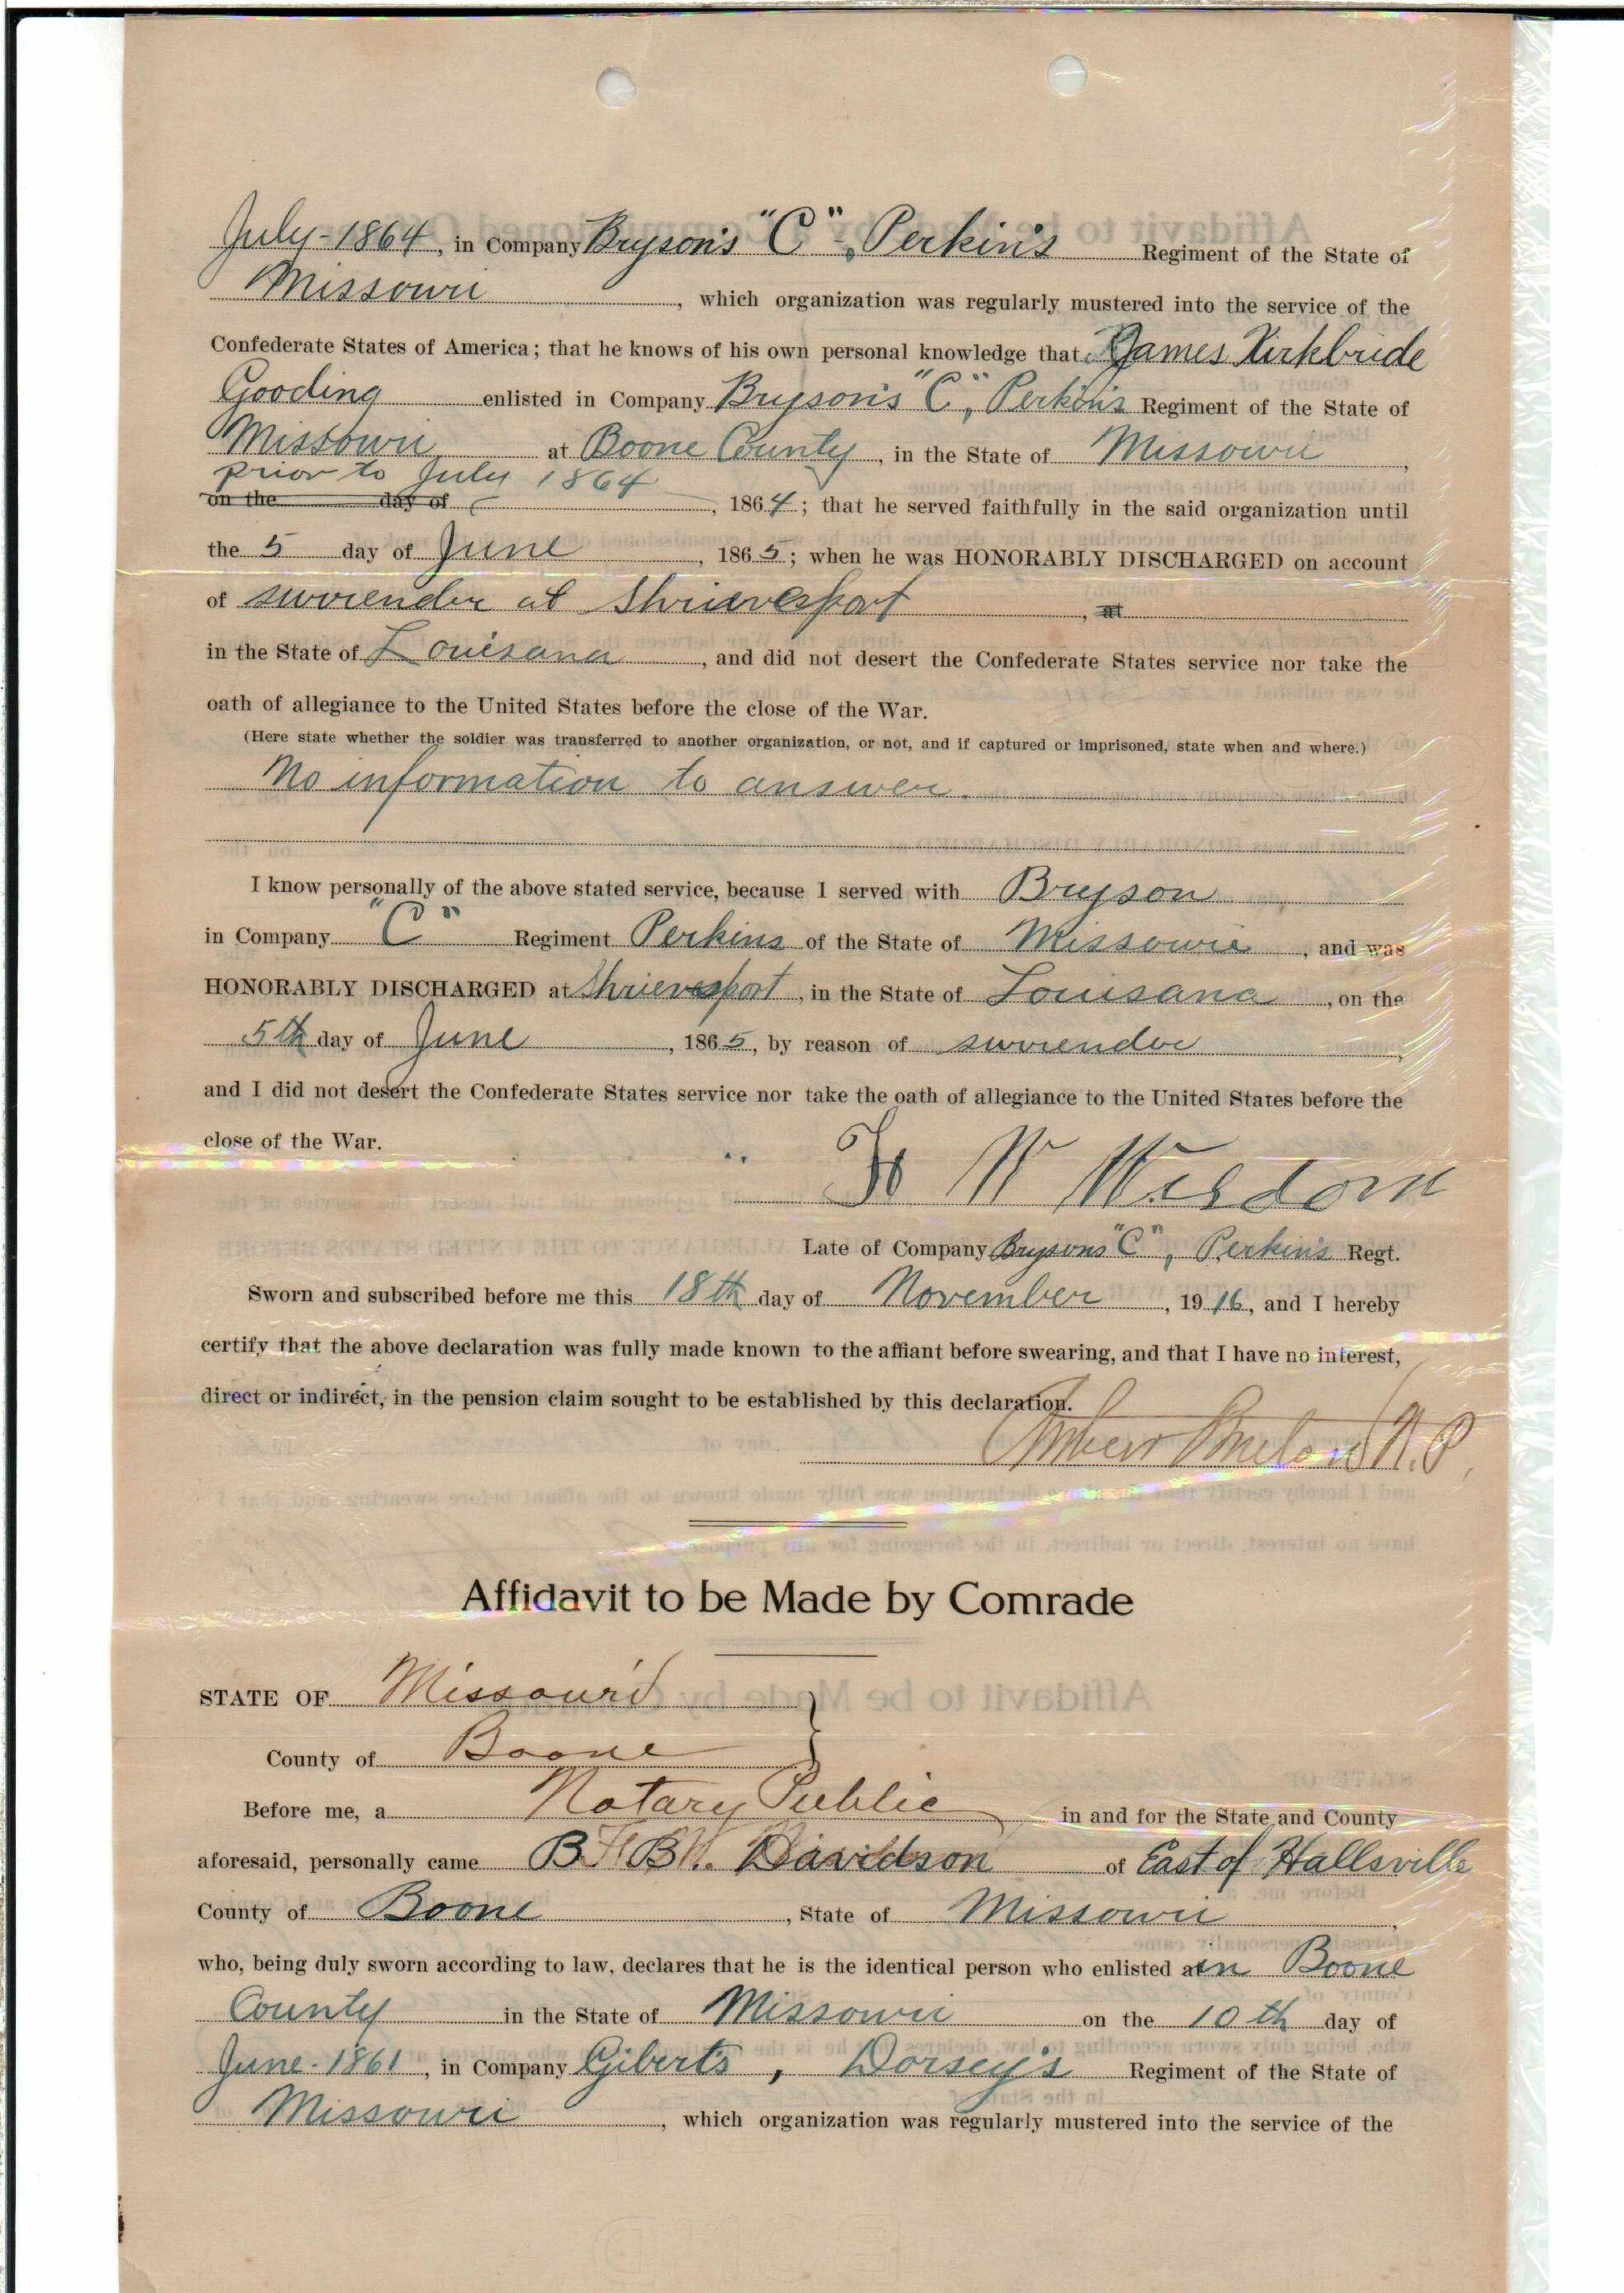 July-1864, in Company Bryson's "C", Perkin's Regiment of the State of
Missouri, which organization was regularly mustered into the service of the
Confederate States of America; that he knows of his own personal knowledge that James Kirkbride
Gooding enlisted in Company Bryson's "C", Perkin's Regiment of the State of
Missouri, at Boone County, in the State of Missouri,
prior to July 1864
on the day of , 1864; that he served faithfully in the said organization until
the 5 day of June, 1865; when he was HONORABLY DISCHARGED on account
of surrender at Shrievesport, at
in the State of Louisana, and did not desert the Confederate States service nor take the
oath of allegiance to the United States before the close of the War.
(Here state whether the soldier was transferred to another organization, or not, and if captured or imprisoned, state when and where.)
No information to answer.
I know personally of the above stated service, because I served with Bryson
in Company "C" Regiment Perkins of the State of Missouri, and was
HONORABLY DISCHARGED at Shrievesport, in the State of Louisana, on the
5th day of June, 1865, by reason of surrender,
and I did not desert the Confederate States service nor take the oath of allegiance to the United States before the
close of the War.
W Wisdom
Late of Company Brysons "C", Perkin's Regt.
Sworn and subscribed before me this 18th day of November, 1916, and I hereby
certify that the above declaration was fully made known to the affiant before swearing, and that I have no interest,
direct or indirect, in the pension claim sought to be established by this declaration.
N.P.
Affidavit to be Made by Comrade
STATE OF Missouri
County of Boone
Before me, a Notary Public in and for the State and County
aforesaid, personally came Davidson of East of Hallsville
County of Boone, State of Missouri,
who, being duly sworn according to law, declares that he is the identical person who enlisted in Boone
County in the State of Missouri on the 10th day of
June-1861, in Company Giberts, Dorsey's Regiment of the State of
Missouri, which organization was regularly mustered into the service of the